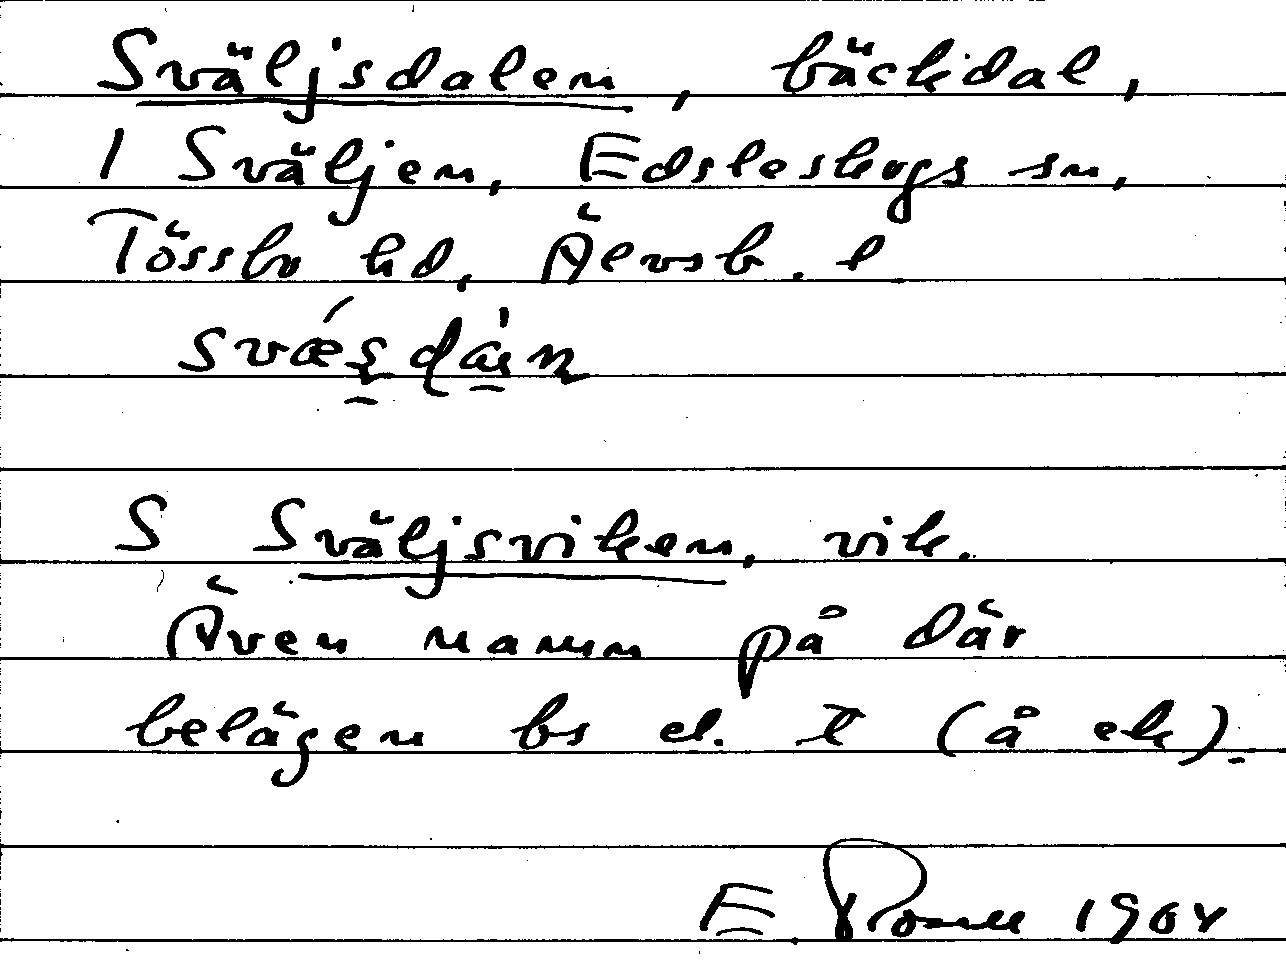 Sväljsdalen, bäckdal,
1 Sväljen, Edsleskogs sn,
Tössbo hd, Älvsb. l
S Sväljsviken, vik.
Även namn på där
belägen bs el. t (å ek).
E. 1904